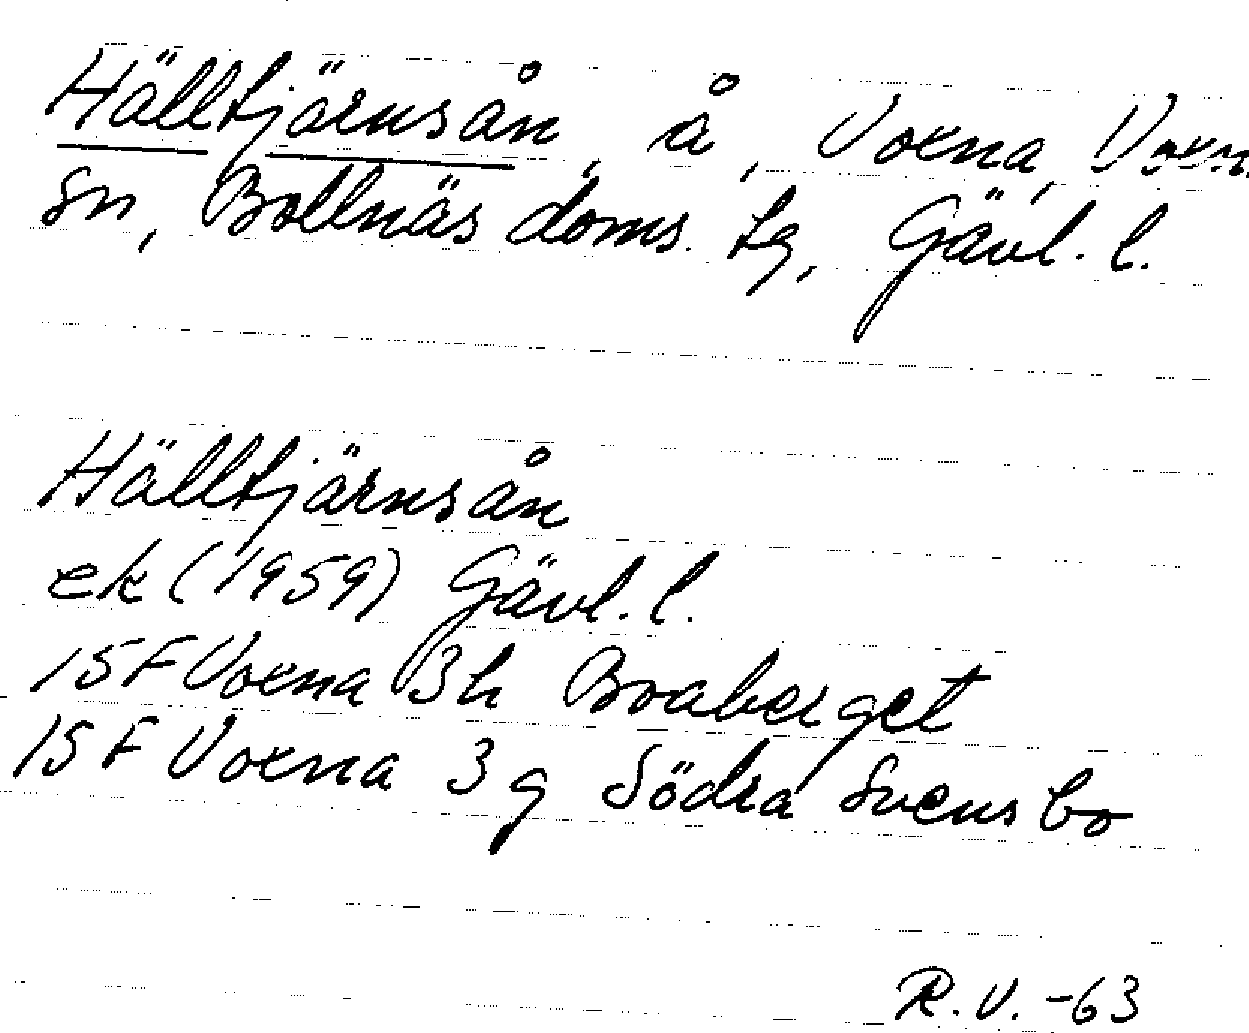 Hälltjärnsån, å, Voxna, Voxn
sn, Bollnäs doms. tg, Gävl. l.
Hälltjärnsån
ek (1959) Gävl. l.
15F Voxna 3h Broaberget
15F Voxna 3g Södra Svensbo
R.V. -63